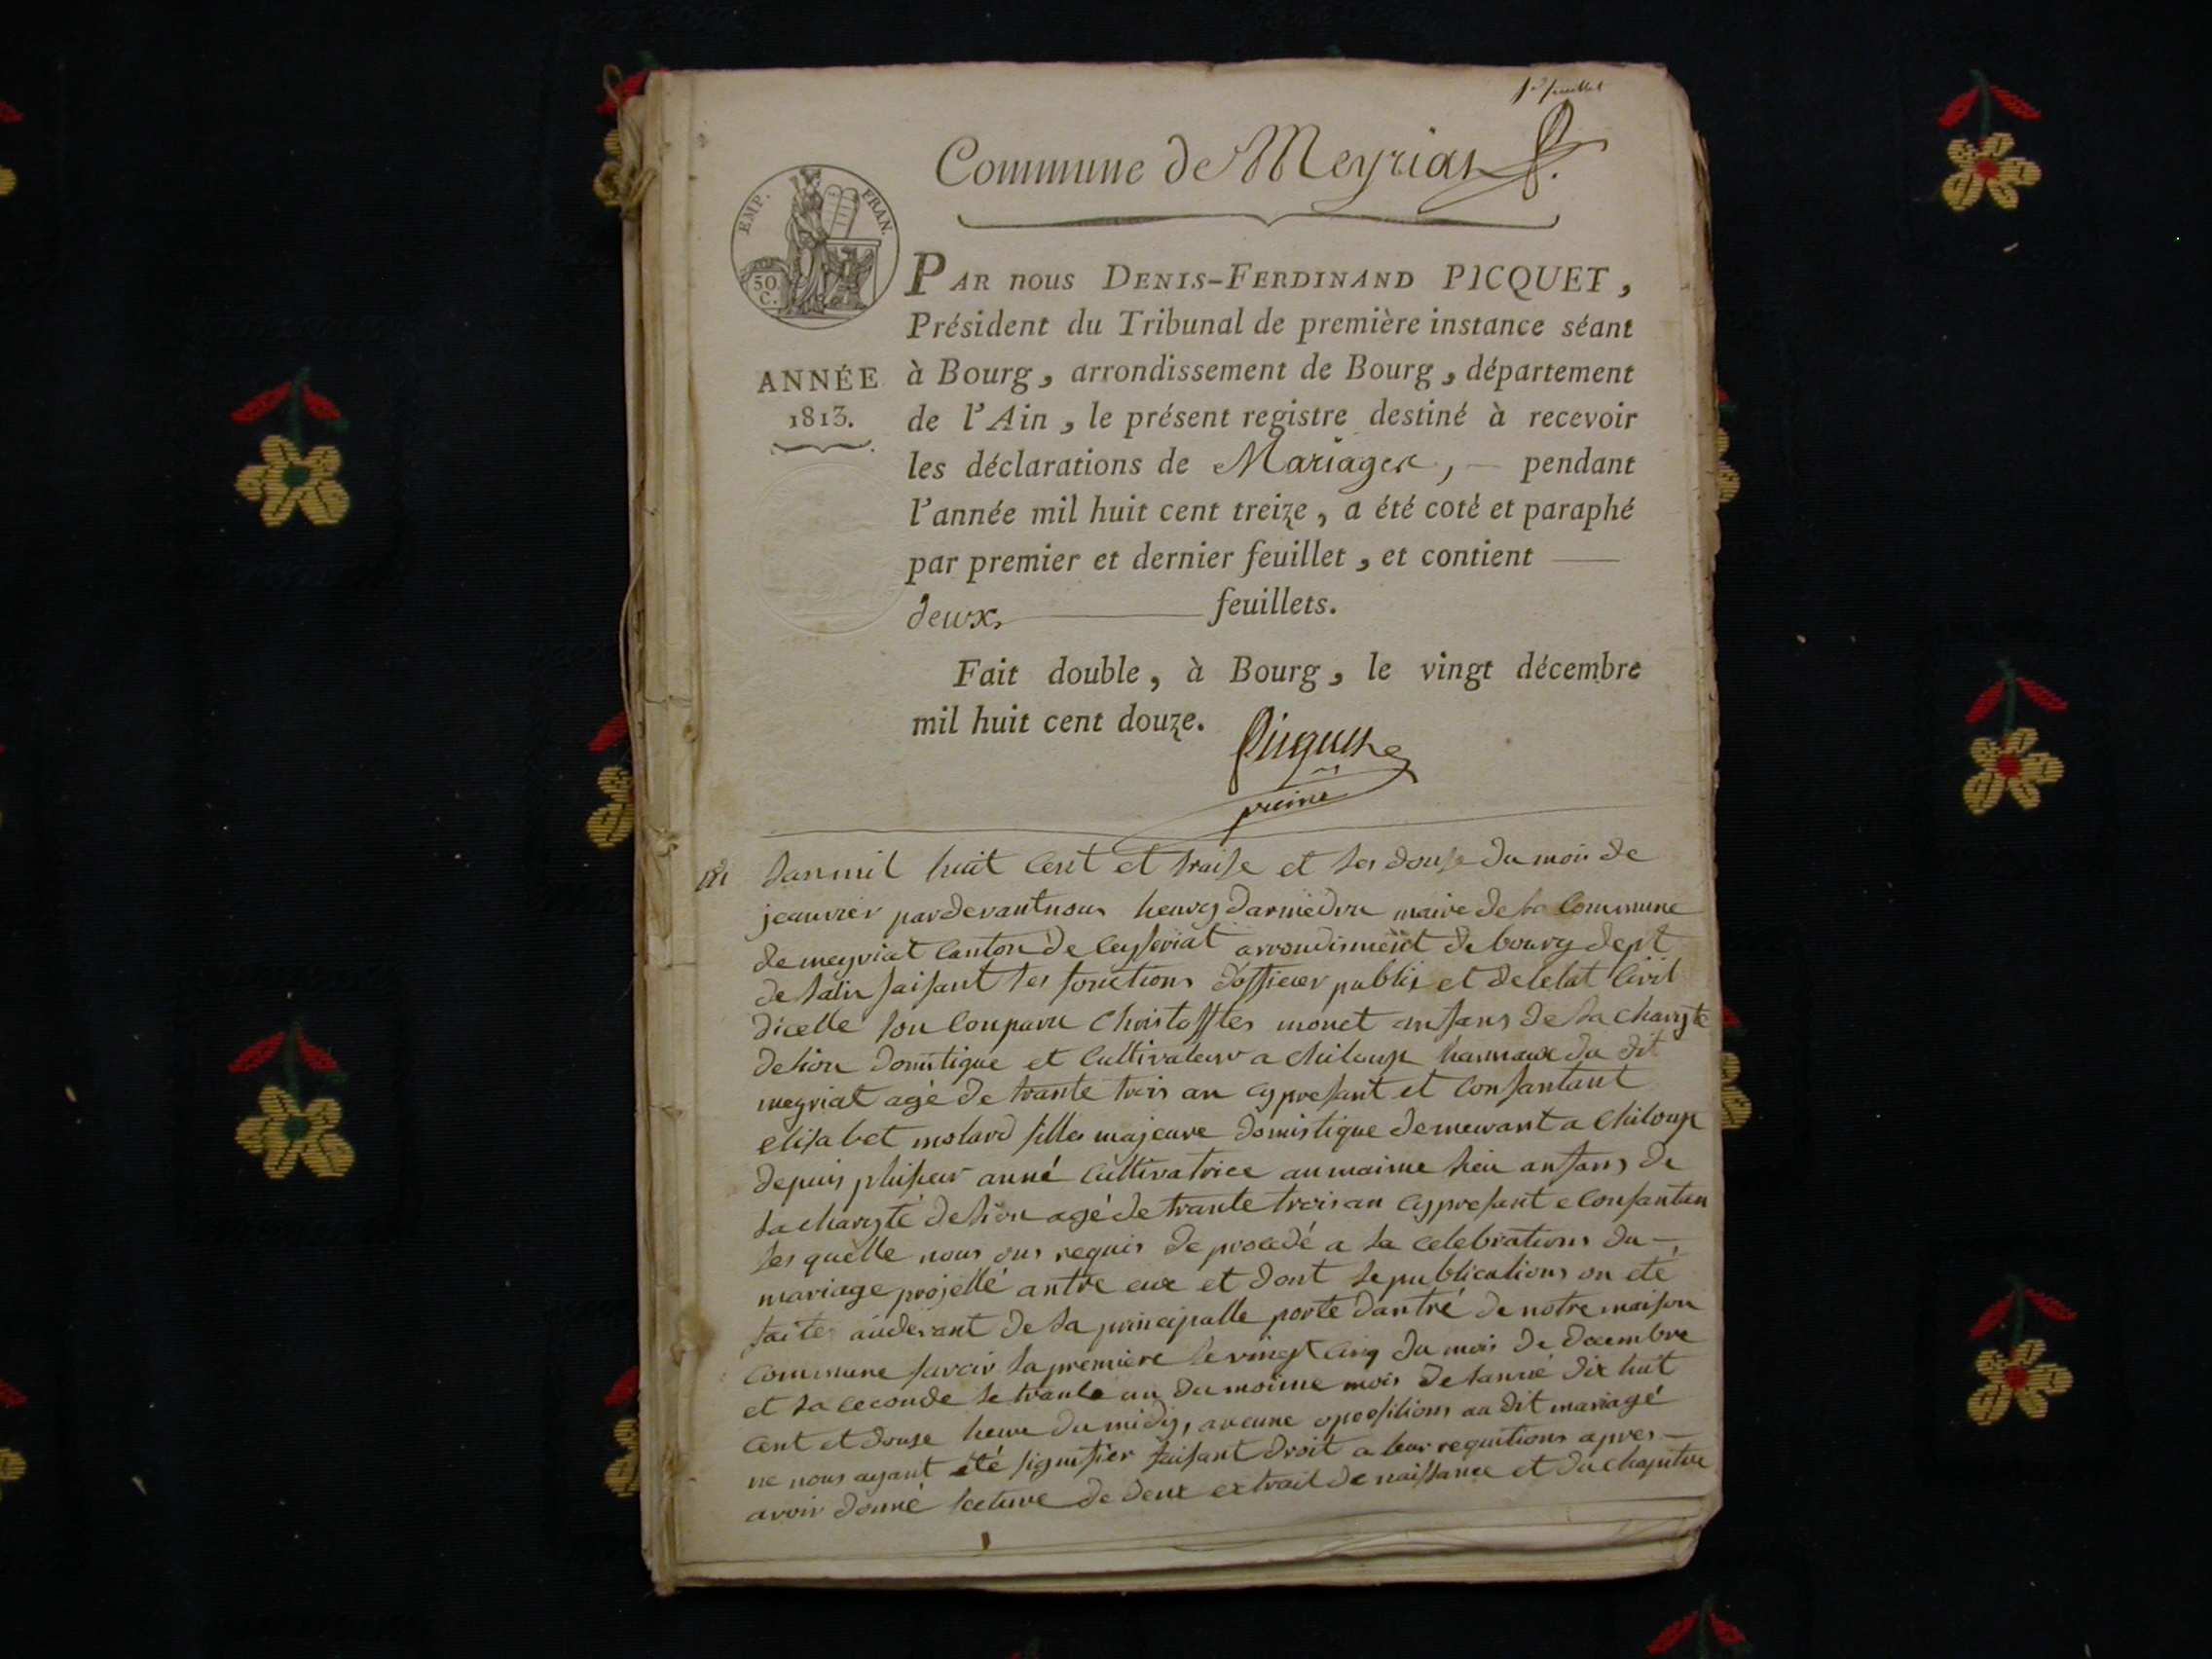 1er feuillet
Commune de Meyriat
EMP. FRAN.
50 C.
PAR nous DENIS-FERDINAND PICQUET,
Président du Tribunal de première instance séant
ANNÉE
1813.
à Bourg, arrondissement de Bourg, département
de l'Ain, le présent registre destiné à recevoir
les déclarations de Mariages, — pendant
l'année mil huit cent treize, a été coté et paraphé
par premier et dernier feuillet, et contient —
deux — feuillets.
Fait double, à Bourg, le vingt décembre
mil huit cent douze.
Picquet
lanmil huit Cent et traise et les douse du mois de
jeanvier pardevantnous henry darmedru maire de la Commune
de meyriat Canton de Ceyseriat arrondisment de bourg dept
de lain faisant les fonctions dofficier publix et deletat Civil
dicelle son Conparu Christoffles monet anfans de la charyte
de lion domistique et Cultivateur a Chiloup hammaux du dit
meyriat agé de trante trois an cy presant et Consantant
elisabet molard filles majeure domistique demeurant a Chiloup
depuis plusieur anné Cultivatrice aumaime lieu anfans de
la charyté de lion agé de trante trois an cy presant e Consantan
les quelle nous ons requis de procedé a la Celebrations du —
mariage projetté antre eux et dont le publications on eté
faites audevant de la principalle porte dantré de notre maison
Commune savoir la premiere le vingt Cinq du mois de decembre
et la ceconde le trante un du moime mois de lanné dix huit
Cent et douse heure du midy, aucune opositions au dit mariagé
ne nous ayant été signifier faisant droit a leur requitions apres —
avoir donné lecture de deux extrait de naissance et du chapitre